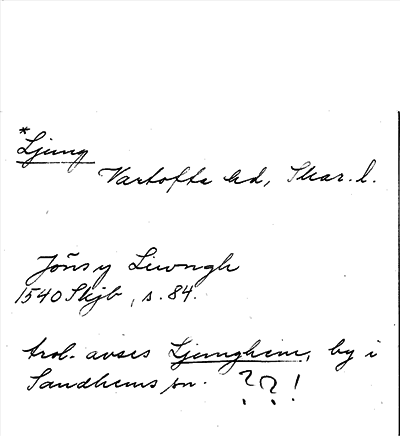 *Ljung
Vartofta hd, Skar. l.
Jöns y Liwngh
1540 Skjb, s. 84.
trol. avses Ljunghem, by i
Sandhems sn. ??!